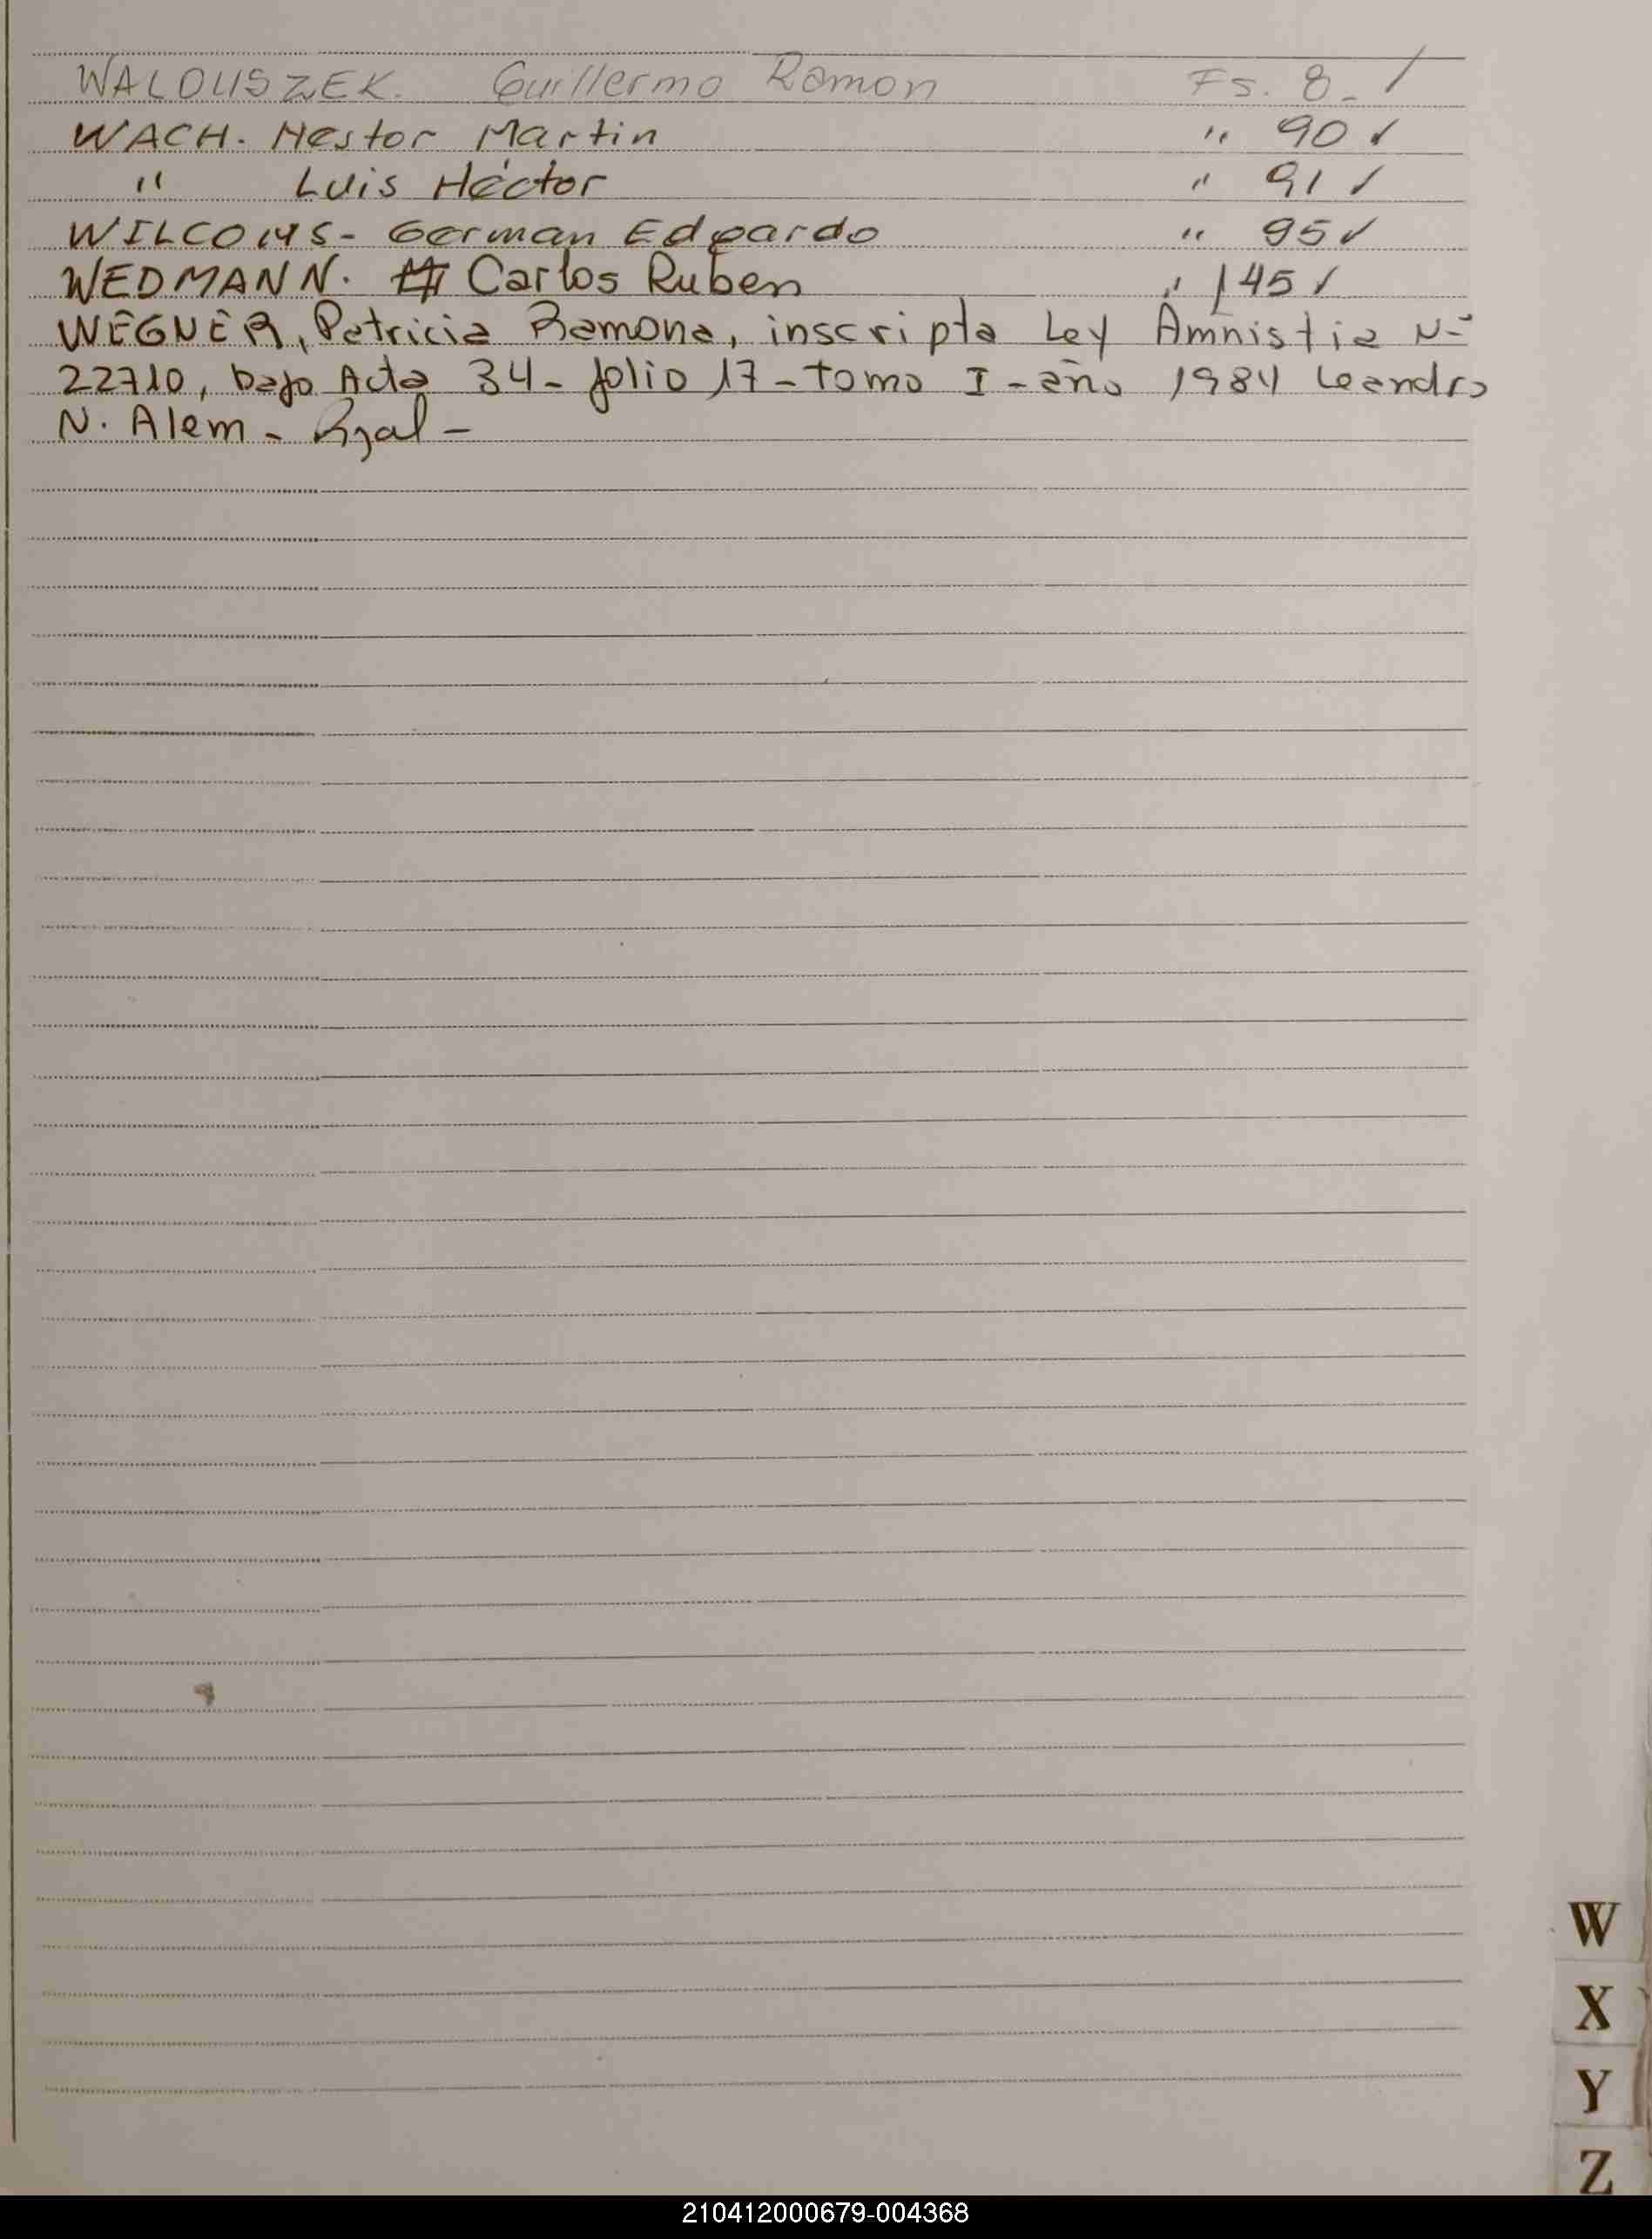 WALOUSZEK. Guillermo Ramon Fs. 8_ /
WACH. Nestor Martin " 90 ✓
" Luis Héctor " 91 /
WILCOMS - German Edgardo " 95 ✓
WEDMANN. Carlos Ruben " 145 /
WEGNER, Patricia Ramona, inscripta Ley Amnistia Nº
22710, bajo Acta 34 - folio 17 - tomo I - año 1984 Leandro
N. Alem -
W
X
Y
Z
210412000679-004368